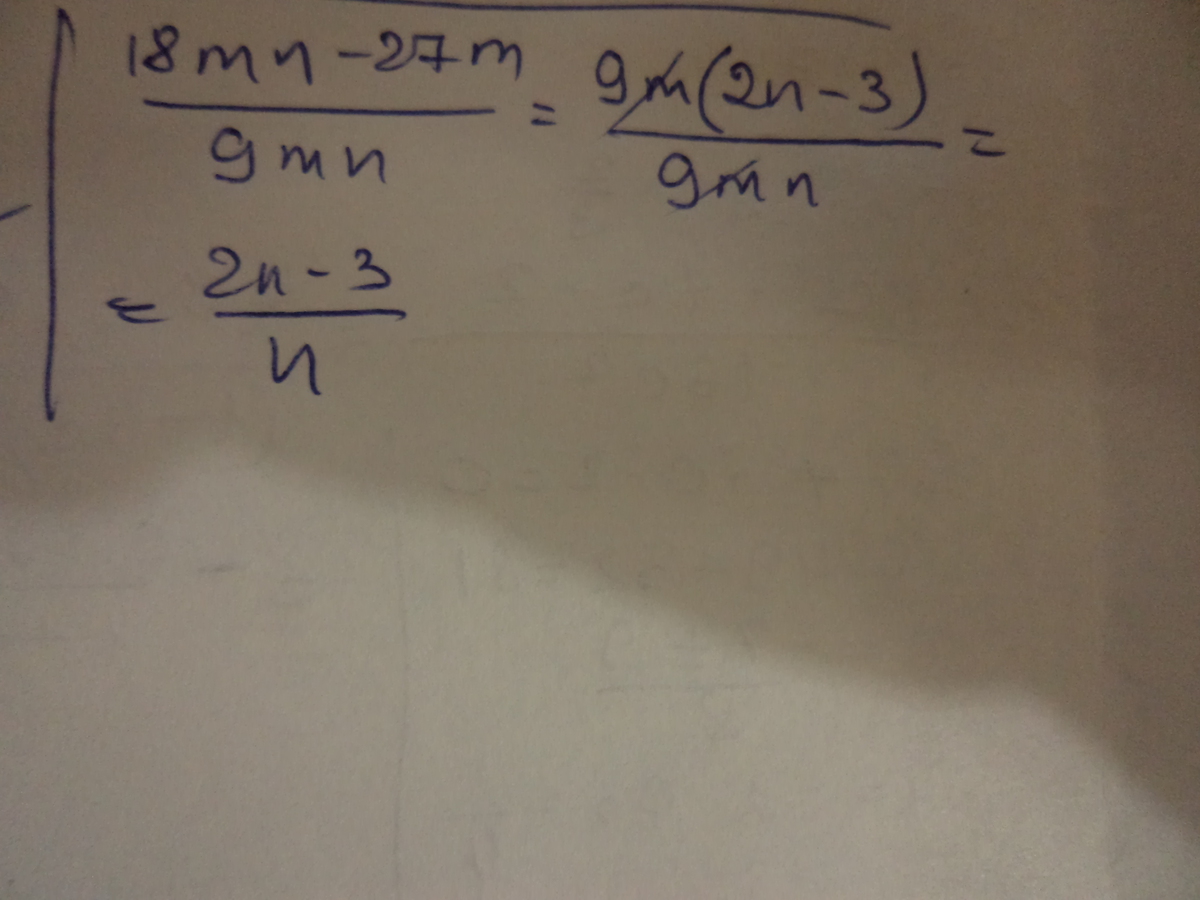 18mn-27m/9mn = 9m(2n-3)/9mn =
= 2n-3/n